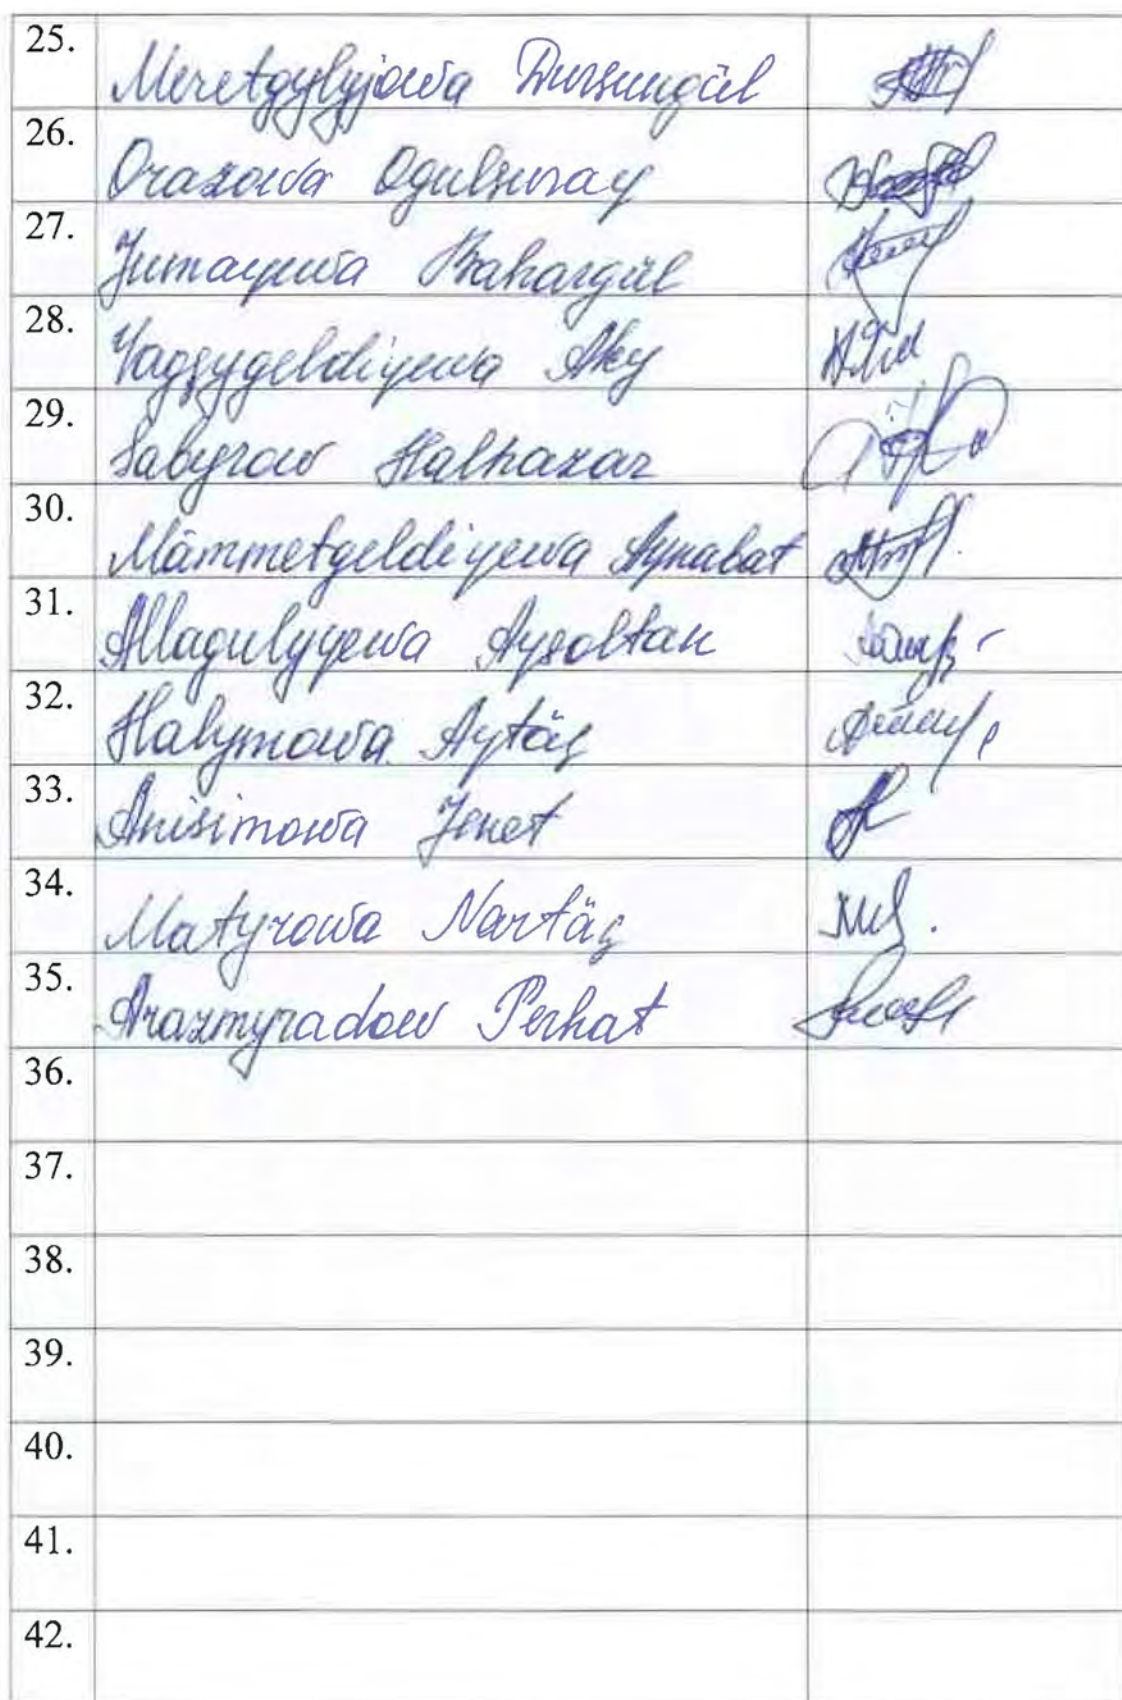 25. Meretgylyjowa Dursungül
26. Orazowa Ogulsuray
27. Jumayewa Bahargül
28. Yagşygeldiyewa Aky
29. Sabyrow Halnazar
30. Mämmetgeldiyewa Aynabat
31. Allagulyyewa Aysoltan
32. Halymowa Aytäç
33. Anisimowa Jenet
34. Matyrowa Nartäç
35. Arazmyradow Perhat
36.
37.
38.
39.
40.
41.
42.